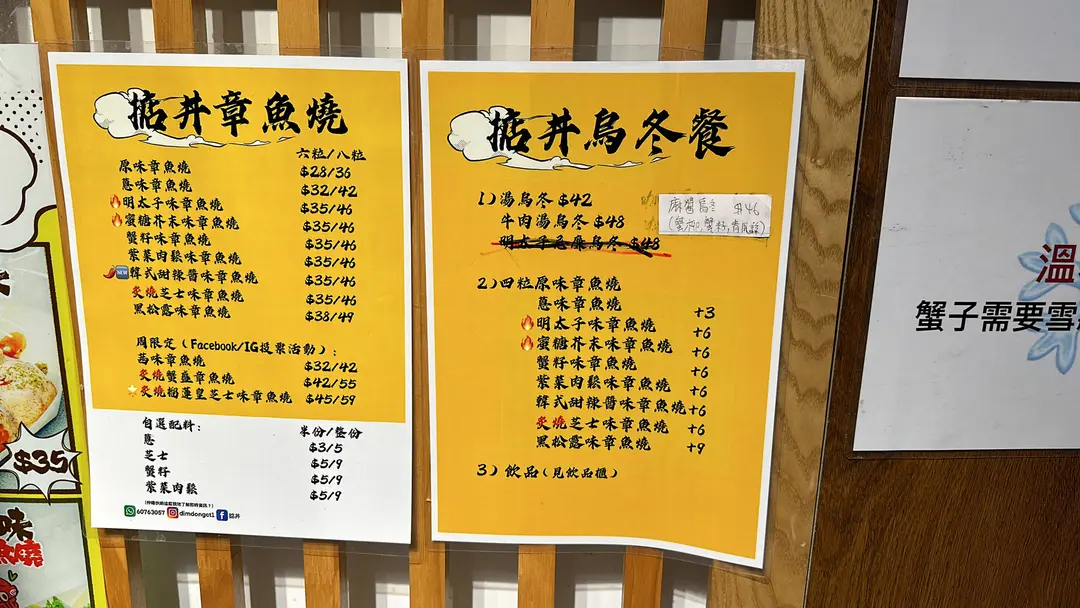 掂丼章魚燒
六粒/八粒
原味章魚燒 $28/36
蔥味章魚燒 $32/42
明太子味章魚燒 $35/46
蜜糖芥末味章魚燒 $35/46
蟹籽味章魚燒 $35/46
紫菜肉鬆味章魚燒 $35/46
NEW 韓式甜辣醬味章魚燒 $35/46
炙燒芝士味章魚燒 $35/46
黑松露味章魚燒 $38/49
周限定(Facebook/IG投票活動):
茜味章魚燒 $32/42
炙燒蟹蓋章魚燒 $42/55
炙燒榴蓮皇芝士味章魚燒 $45/59
自選配料: 半份/整份
蔥 $3/5
芝士 $5/9
蟹籽 $5/9
紫菜肉鬆 $5/9
60763057 dimdongct1 掂丼
掂丼烏冬餐
1)湯烏冬 $42
牛肉湯烏冬 $48
明太子
烏冬 $48
麻醬烏冬 $46
2)四粒原味章魚燒
蔥味章魚燒 +3
明太子味章魚燒 +6
蜜糖芥末味章魚燒 +6
蟹籽味章魚燒 +6
紫菜肉鬆味章魚燒 +6
韓式甜辣醬味章魚燒 +6
炙燒芝士味章魚燒 +6
黑松露味章魚燒 +9
3)飲品(見飲品櫃)
/$35
味
魚燒
溫
蟹子需要雪